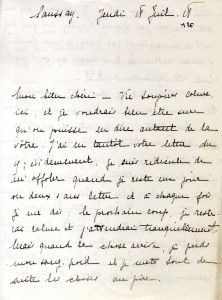 Saussay. Jeudi 18 Juil. 18
Mon bien chéri — Vie toujours calme
ici ; et je voudrais bien être sûre
qu'on puisse en dire autant de la
vôtre. J'ai eu tantôt votre lettre du
évidemment, je suis ridicule de
m'affoler quand je reste un jour
ou deux sans lettre et à chaque fois
je me dis : le prochain coup, je reste
calme et j'attendrai tranquillement
Mais quand la chose arrive, je perds
mon sang-froid et je mets tout de
suite les choses au pire.